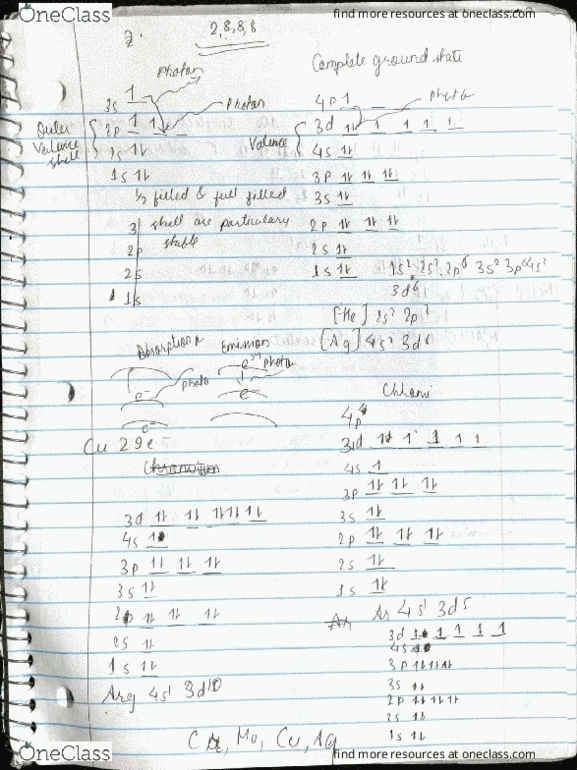 OneClass
find more resources at oneclass.com
2.
2,8,8,8
Complete ground state
photon
3s 1
photon
4p 1
photo
Outer Valence shell
2p 1 1
Valence
3d 1l 1 1 1 1
2s 1l
4s 1l
1s 1l
3p 1l 1l 1l
1/2 filled & full filled
3s 1l
shell are particulary
stable
2p 1l 1l 1l
3
2p
2s 1l
2s
1s 1l
1s², 2s², 2p⁶ 3s² 3p⁶ 4s²
1s
3d⁶
[He] 2s² 2p
[Ag] 4s² 3d⁶
Absorption
Emission
photo
e⁻
e⁻
photon
e
e⁻
Cu 29e⁻
4p
3d 1l 1 1 1 1
4s 1
3p 1l 1l 1l
3d 1l 1l 1l 1l 1l
3s 1l
4s 1
2p 1l 1l 1l
3p 1l 1l 1l
2s 1l
3s 1l
1s 1l
2p 1l 1l 1l
Ar 4s¹ 3d⁵
2s 1l
3d 1 1 1 1 1
4s
1s 1l
3p 1l 1l 1l
Arg 4s¹ 3d¹⁰
3s 1l
2p 1l 1l 1l
2s 1l
1s 1l
Mo, Cu, Ag
OneClass
find more resources at oneclass.com